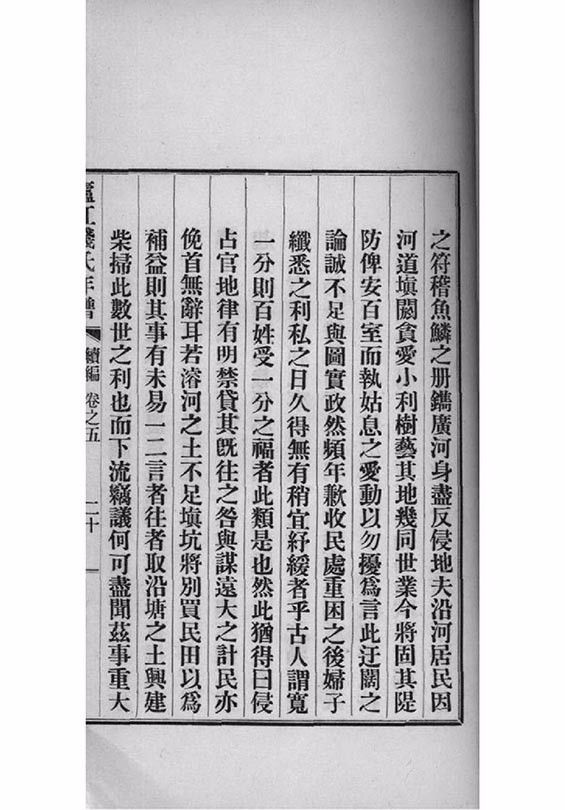 之符稽魚鱗之册鐫廣河身盡反侵地夫沿河居民因
河道塡閼貪愛小利樹藝其地幾同世業今將固其隄
防俾安百室而執姑息之愛動以勿擾爲言此迂闊之
論誠不足與圖實政然頻年歉收民處重困之後婦子
纖悉之利私之日久得無有稍宜紓緩者乎古人謂寬
一分則百姓受一分之福者此類是也然此猶得曰侵
占官地律有明禁貸其既往之咎與謀遠大之計民亦
俛首無辭耳若濬河之土不足塡坑將別買民田以爲
補益則其事有未易一二言者往者取沿塘之土興建
柴掃此數世之利也而下流竊議何可盡聞茲事重大
廬江錢氏年譜 續編 卷之五 二十